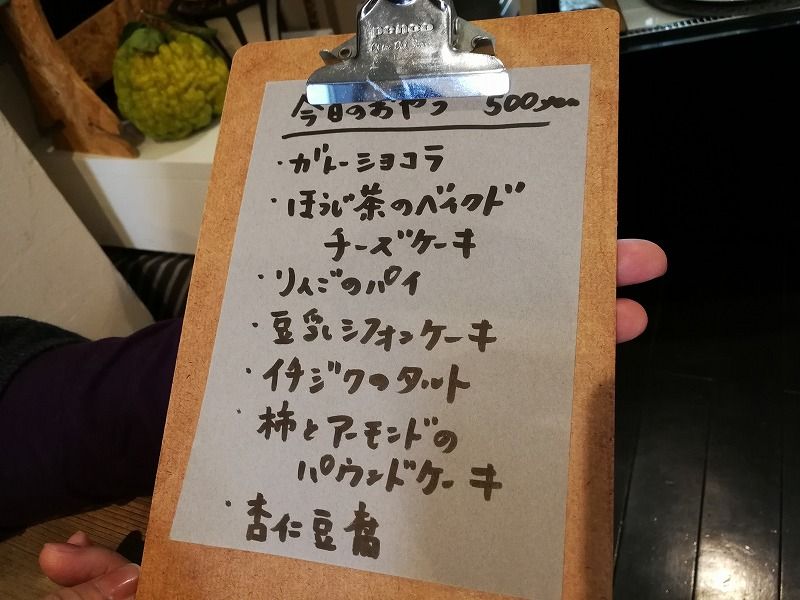 penco
今日のおやつ 500yen
・ガトーショコラ
・ほうじ茶のベイクド
チーズケーキ
・りんごのパイ
・豆乳シフォンケーキ
・イチジクのタルト
・柿とアーモンドの
パウンドケーキ
・杏仁豆腐